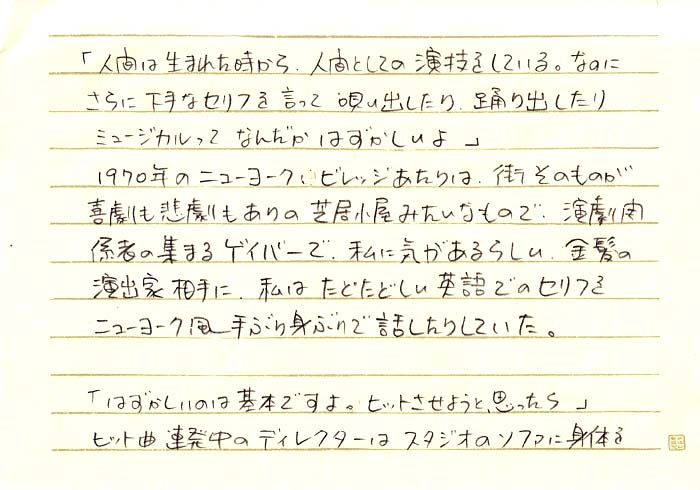 「人間は生まれた時から、人間としての演技をしている。なのに
さらに下手なセリフを言って唄い出したり、踊り出したり
ミュージカルってなんだかはずかしいよ」
1970年のニューヨーク、ビレッジあたりは、街そのものが
喜劇も悲劇もありの芝居小屋みたいなもので、演劇関
係者の集まるゲイバーで、私に気があるらしい、金髪の
演出家相手に、私はたどたどしい英語でのセリフを
ニューヨーク風手ぶり身ぶりで話したりしていた。
「はずかしいのは基本ですよ。ヒットさせようと、思ったら」
ヒット曲連発中のディレクターはスタジオのソファに身体を